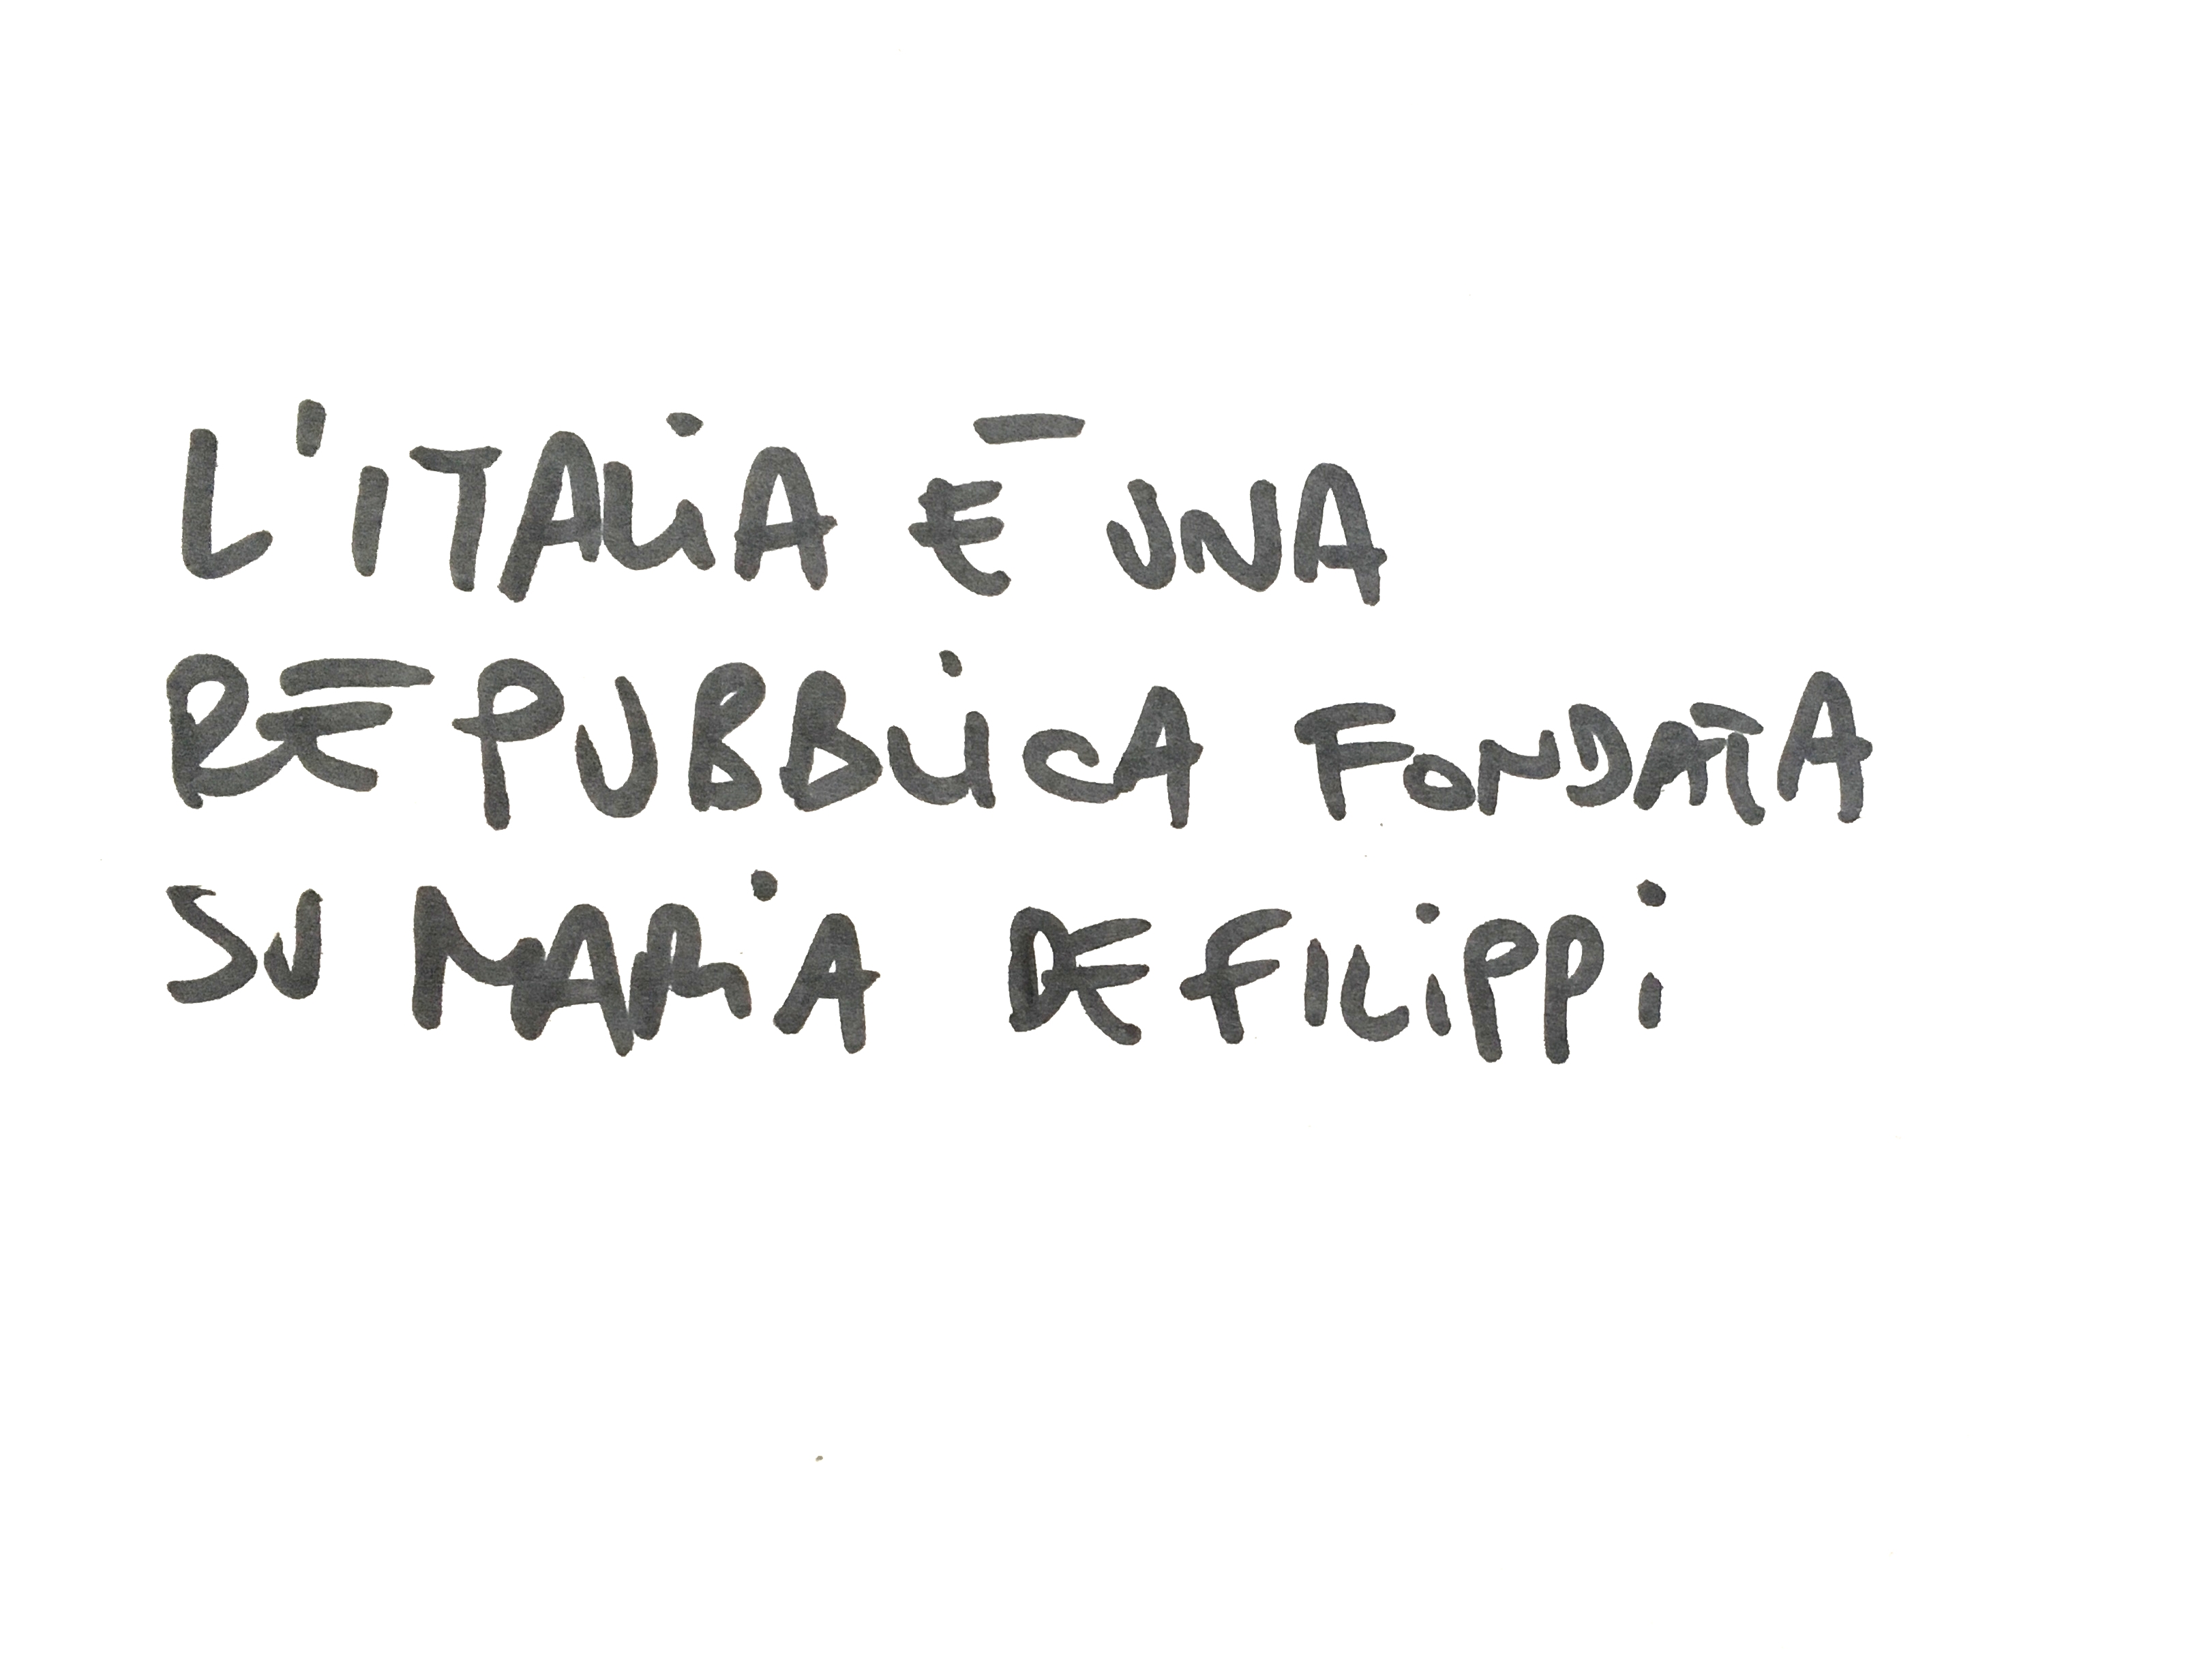 L'ITALIA È UNA
REPUBBLICA FONDATA
SU MARIA DE FILIPPI